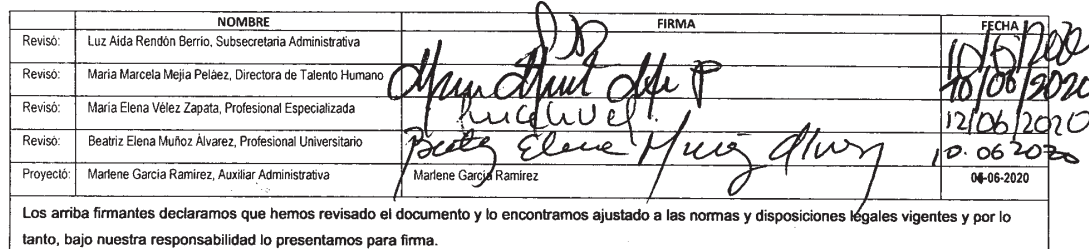 NOMBRE FIRMA FECHA
Revisó: Luz Aida Rendón Berrio, Subsecretaria Administrativa
Revisó: Maria Marcela Mejía Peláez, Directora de Talento Humano 10/06/2020
Revisó: María Elena Vélez Zapata, Profesional Especializada 12/06/2020
Revisó: Beatriz Elena Muñoz Álvarez, Profesional Universitario Elena 10.06 2020
Proyectó: Marlene García Ramírez, Auxiliar Administrativa Marlene García Ramírez -06-2020
Los arriba firmantes declaramos que hemos revisado el documento y lo encontramos ajustado a las normas y disposiciones legales vigentes y por lo
tanto, bajo nuestra responsabilidad lo presentamos para firma.